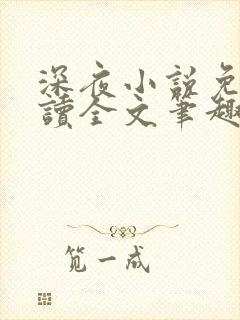 深夜小說免
讀全文筆趣
笕一成